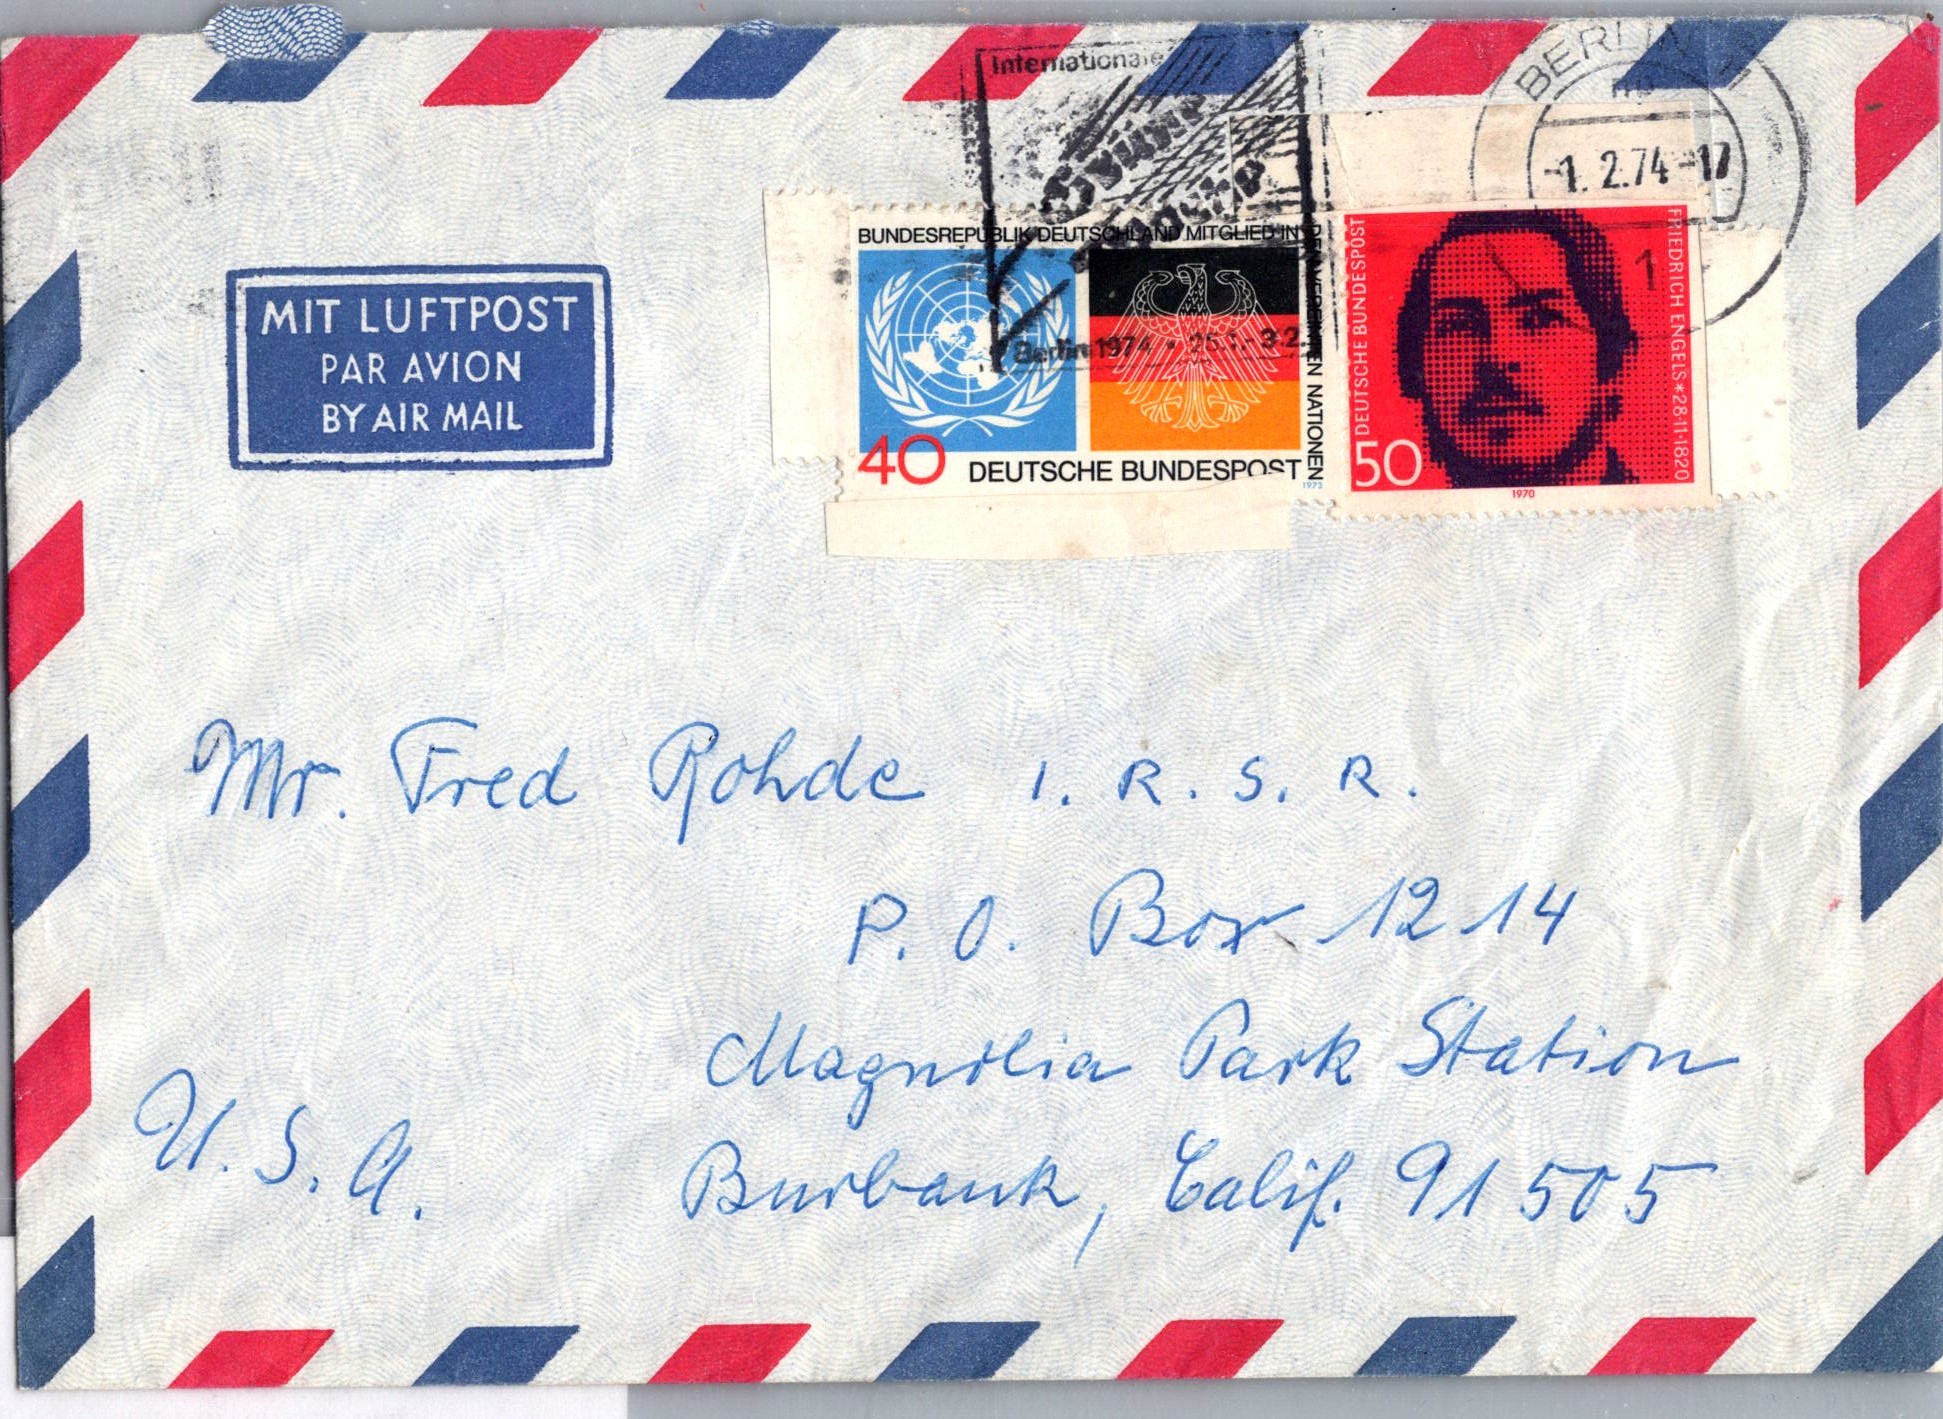 Internationale
Grüne
Woche
Berlin 1974 • 25.1.-3.2.
BERLIN
-1. 2.74 -17
1
MIT LUFTPOST
PAR AVION
BY AIR MAIL
BUNDESREPUBLIK DEUTSCHLAND MITGLIED IN
DEN VEREINTEN NATIONEN
40
DEUTSCHE BUNDESPOST
1973
DEUTSCHE BUNDESPOST
50
FRIEDRICH ENGELS * 28·11·1820
1970
Mr. Fred Rohde I. R. S. R.
P. O. Box 1214
Magnolia Park Station
U. S. A. Burbank, Calif. 91505